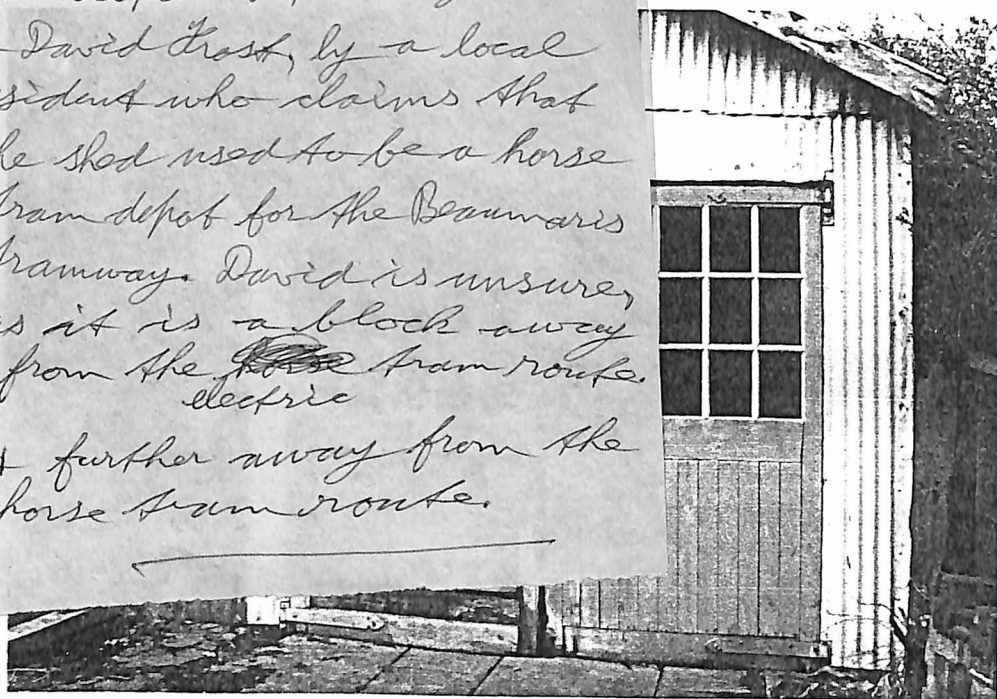 David Frost, by a local
sident who claims that
he shed used to be a horse
tram depot for the Beaumaris
tramway. David is unsure,
s it is a block away
from the tram route.
electric
further away from the
horse tram route.